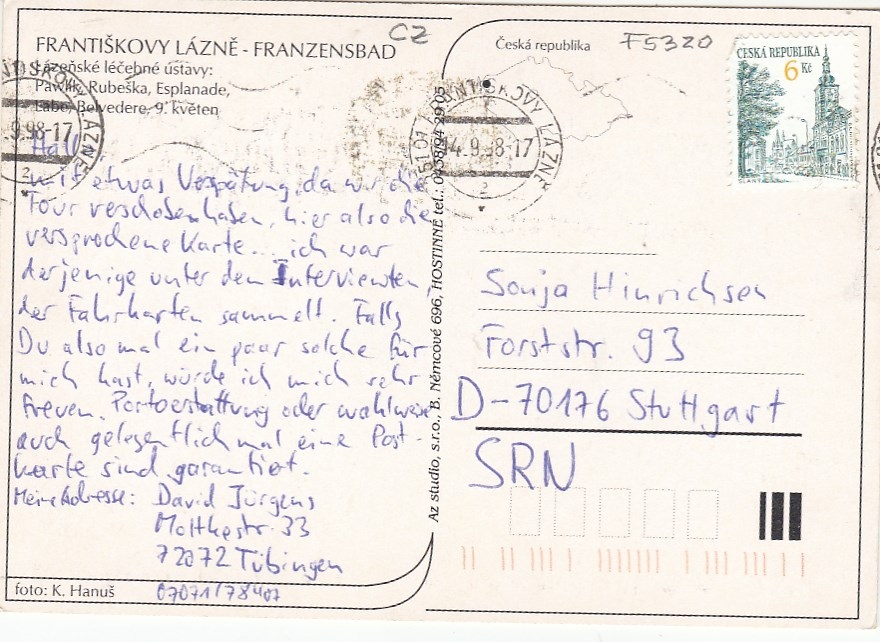 CZ
FRANTIŠKOVY LÁZNĚ - FRANZENSBAD
Lázeňské léčebné ústavy:
Pawlik, Rubeška, Esplanade,
Labe, Belvedere, 9. květen
Hallo,
mit etwas Verspätung, da wir die
Tour verschoben haben, hier also die
versprochene Karte... ich war
derjenige unter den Interviewten
der Fahrkarten sammelt. Falls
Du also mal ein paar solche für
mich hast, würde ich mich sehr
freuen. Portoerstattung oder wahlweise
auch gelegentlich mal eine Post-
karte sind garantiert.
Meine Adresse: David Jürgens
Moltkestr. 33
72072 Tübingen
07071/78407
foto: K. Hanuš
Az studio, s.r.o., B. Němcové 696, HOSTINNÉ tel.: 0438/94 29 05
Česká republika
F5320
ČESKÁ REPUBLIKA
6 Kč
FRANTIŠKOVY LÁZNĚ
351 01
14.9.98-17
2
FRANTIŠKOVY LÁZNĚ
.9.98-17
2
Sonja Hinrichsen
Forststr. 93
D-70176 Stuttgart
SRN